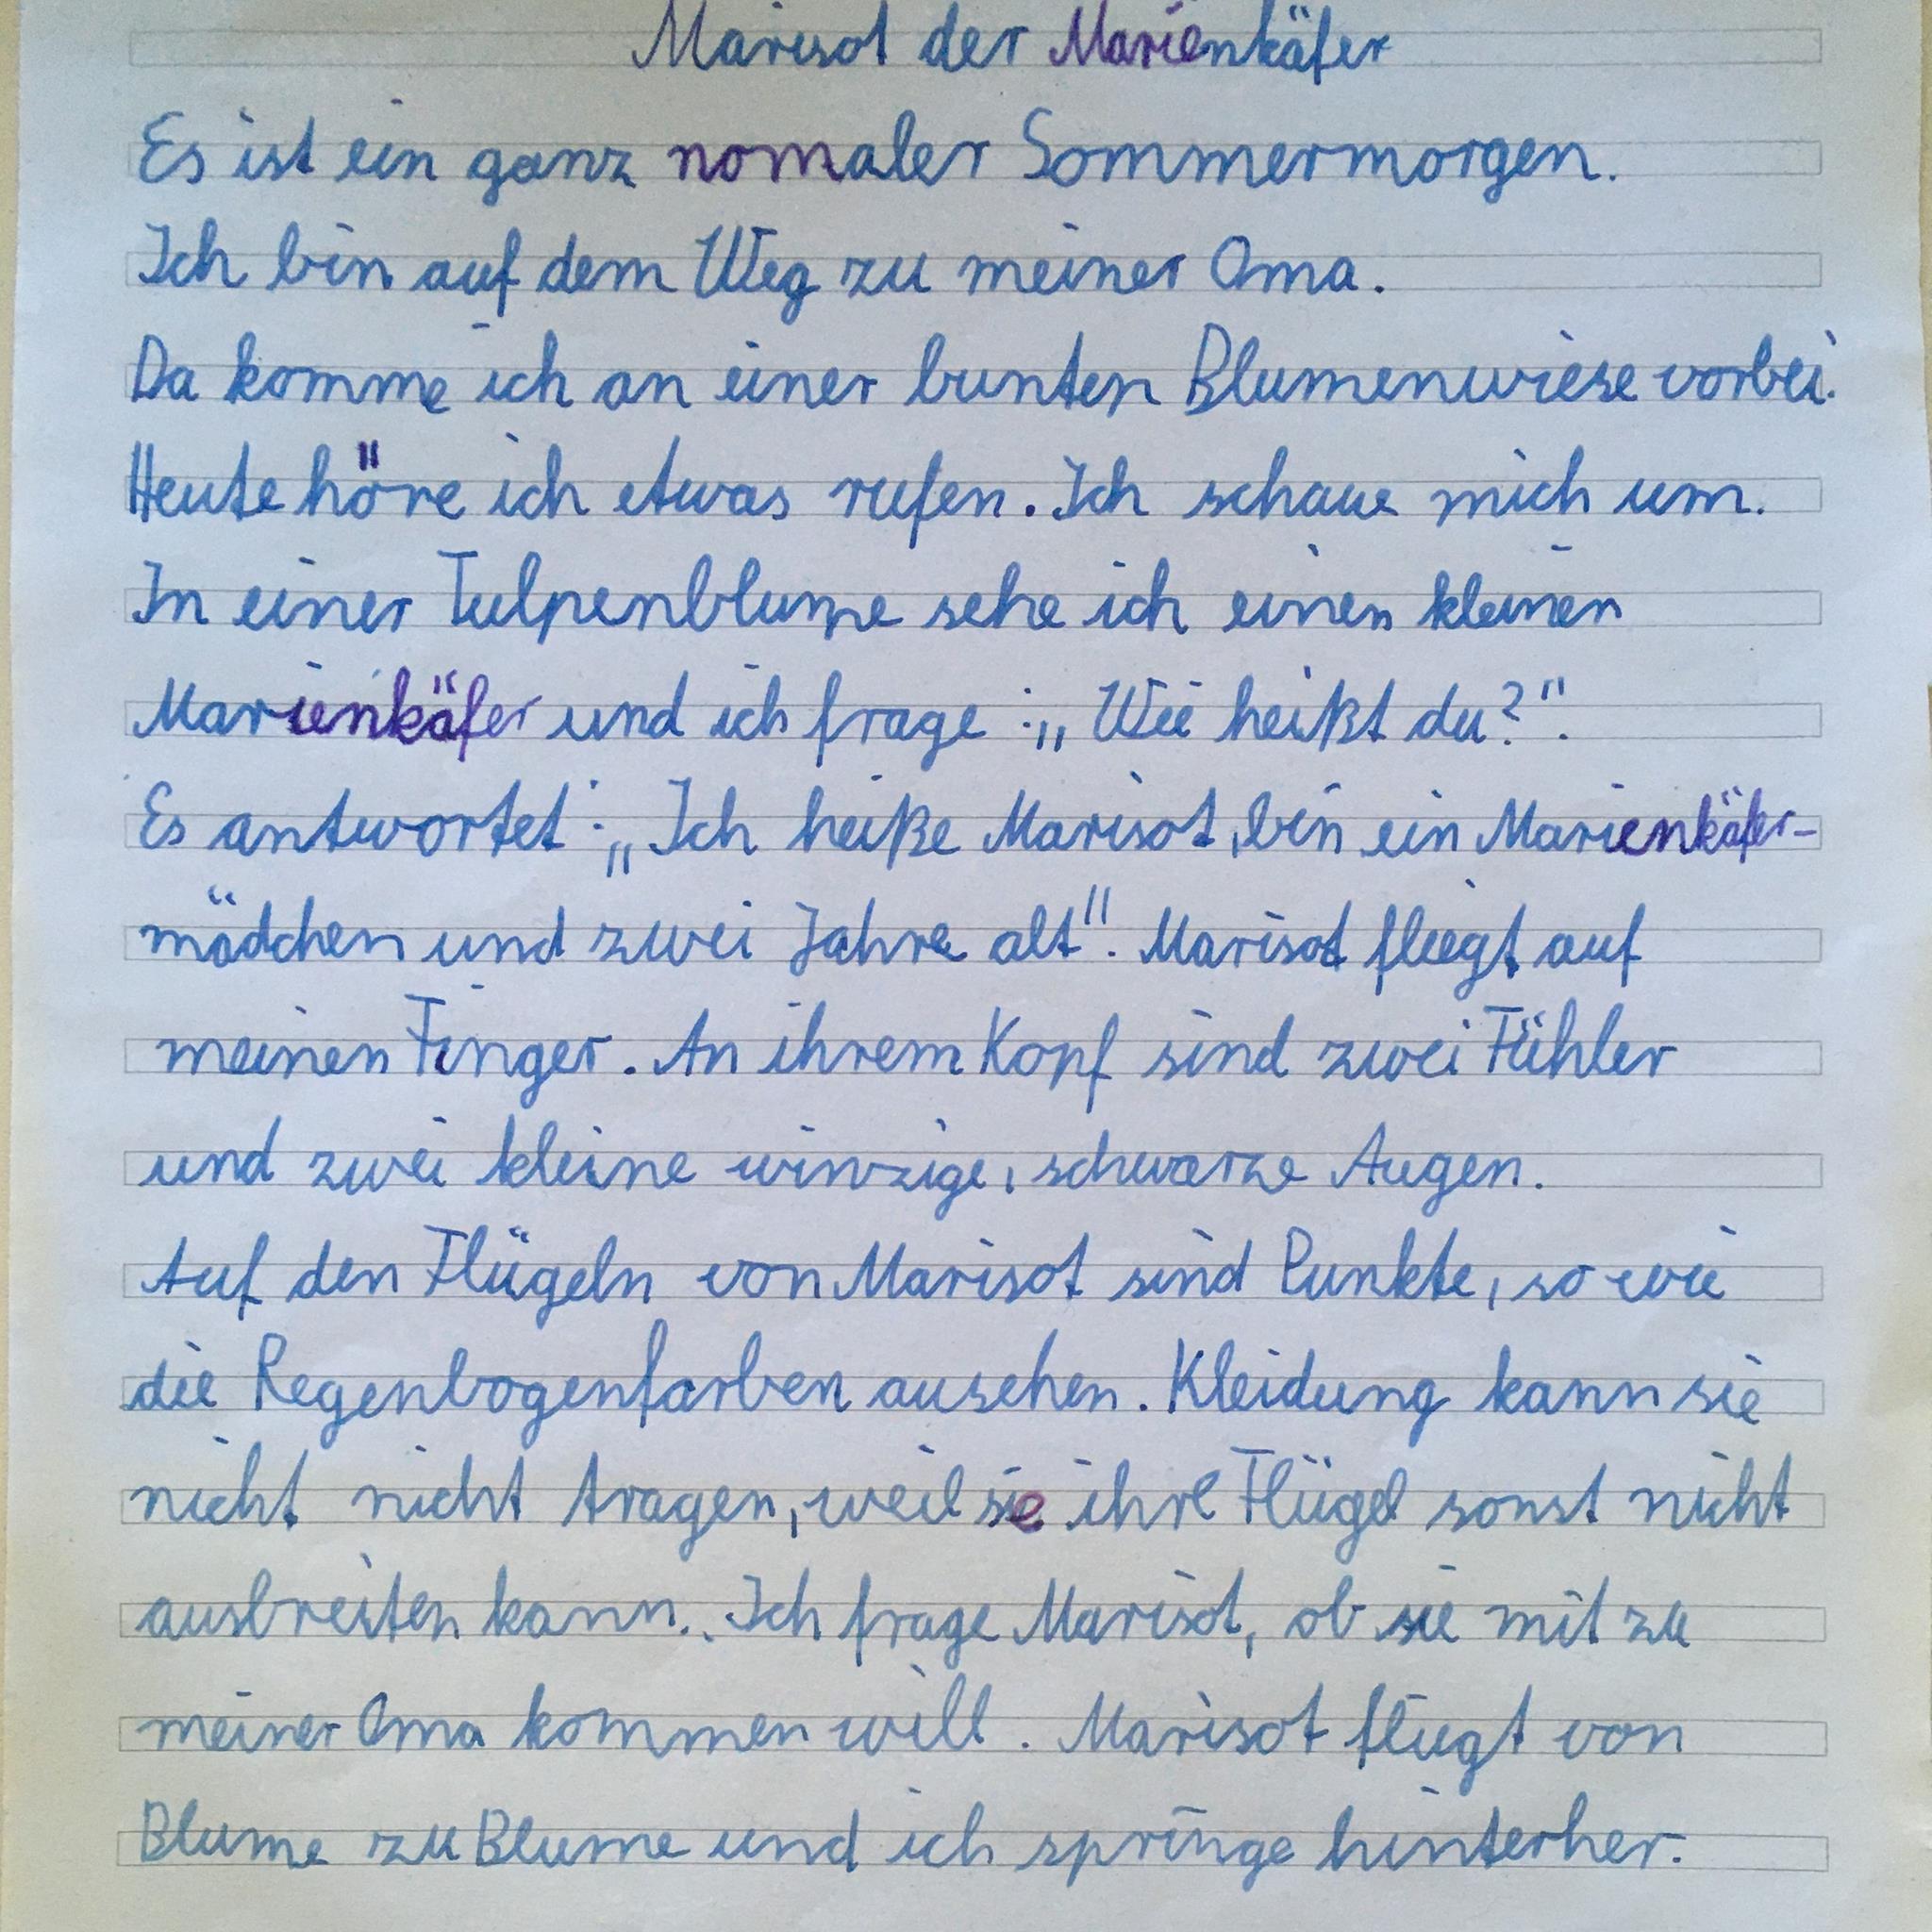 Marisot der Marienkäfer
Es ist ein ganz nomaler Sommermorgen.
Ich bin auf dem Weg zu meiner Oma.
Da komme ich an einer bunten Blumenwiese vorbei.
Heute höre ich etwas rufen. Ich schaue mich um.
In einer Tulpenblume sehe ich einen kleinen
Marienkäfer und ich frage :„ Wie heißt du?".
Es antwortet :„ Ich heiße Marisot, bin ein Marienkäfer-
mädchen und zwei Jahre alt". Marisot fliegt auf
meinen Finger. An ihrem Kopf sind zwei Fühler
und zwei kleine winzige, schwarze Augen.
Auf den Flügeln von Marisot sind Punkte, so wie
die Regenbogenfarben ausehen. Kleidung kann sie
nicht nicht tragen, weil sie ihre Flügel sonst nicht
ausbreiten kann.. Ich frage Marisot, ob sie mit zu
meiner Oma kommen will. Marisot fliegt von
Blume zu Blume und ich springe hinterher.